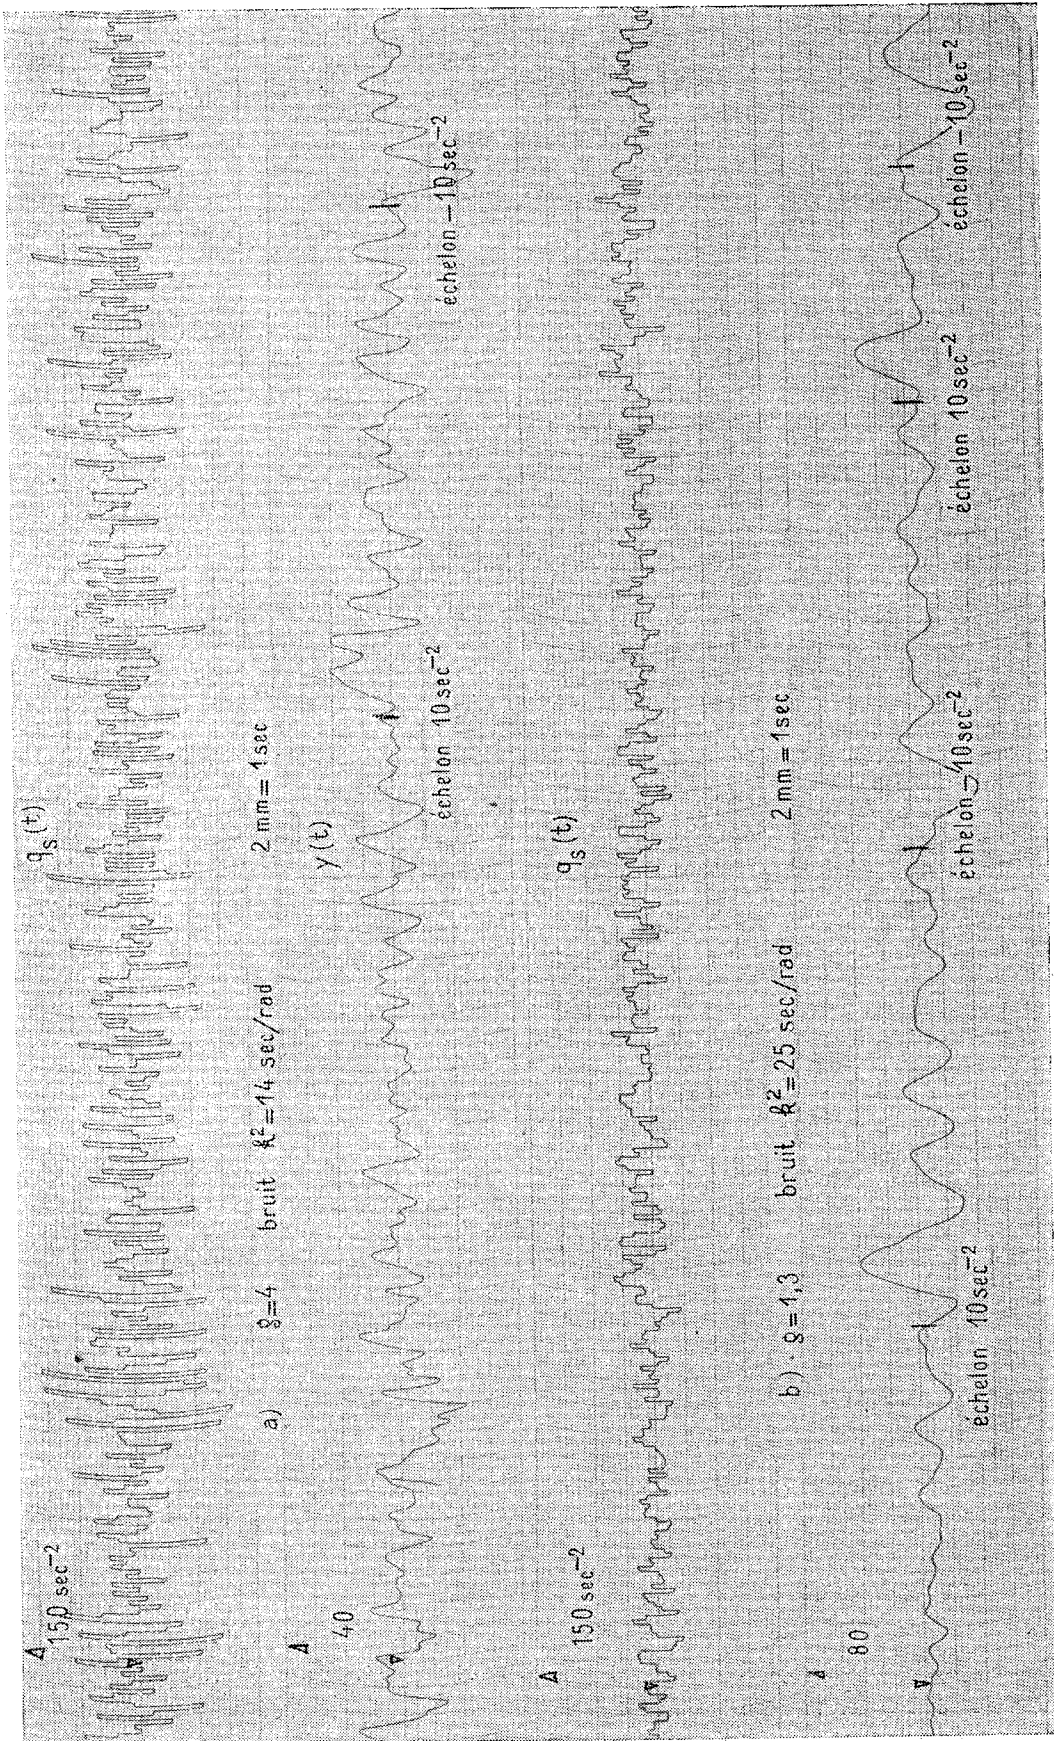 qₛ(t)
150 sec⁻²
a) 8=4 bruit k²=14 sec/rad 2 mm=1sec
y(t)
40
échelon 10sec⁻²
échelon −10sec⁻²
qₛ(t)
150sec⁻²
b) · 8=1,3 bruit k²=25 sec/rad 2mm=1sec
80
échelon 10sec⁻²
échelon −10sec⁻²
échelon 10sec⁻²
échelon −10sec⁻²